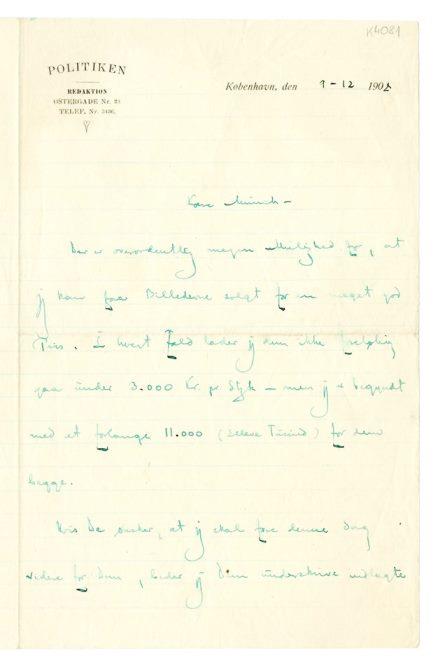 K4081
POLITIKEN
REDAKTION
ØSTERGADE Nr. 23
TELEF. Nr. 3436.
København, den 9-12 1902
Kære Munch –
Der er overordentlig megen Mulighed for, at
jeg kan faa Billederne solgt for en meget god
Pris. I hvert Fald lader jeg dem ikke foreløbig
gaa under 3.000 Kr. pr Styk – men jeg er begyndt
med at forlange 11.000 (Elleve Tusind) for dem
begge.
Hvis De ønsker, at jeg skal føre denne Sag
videre for Dem, beder jeg Dem underskrive indlagte